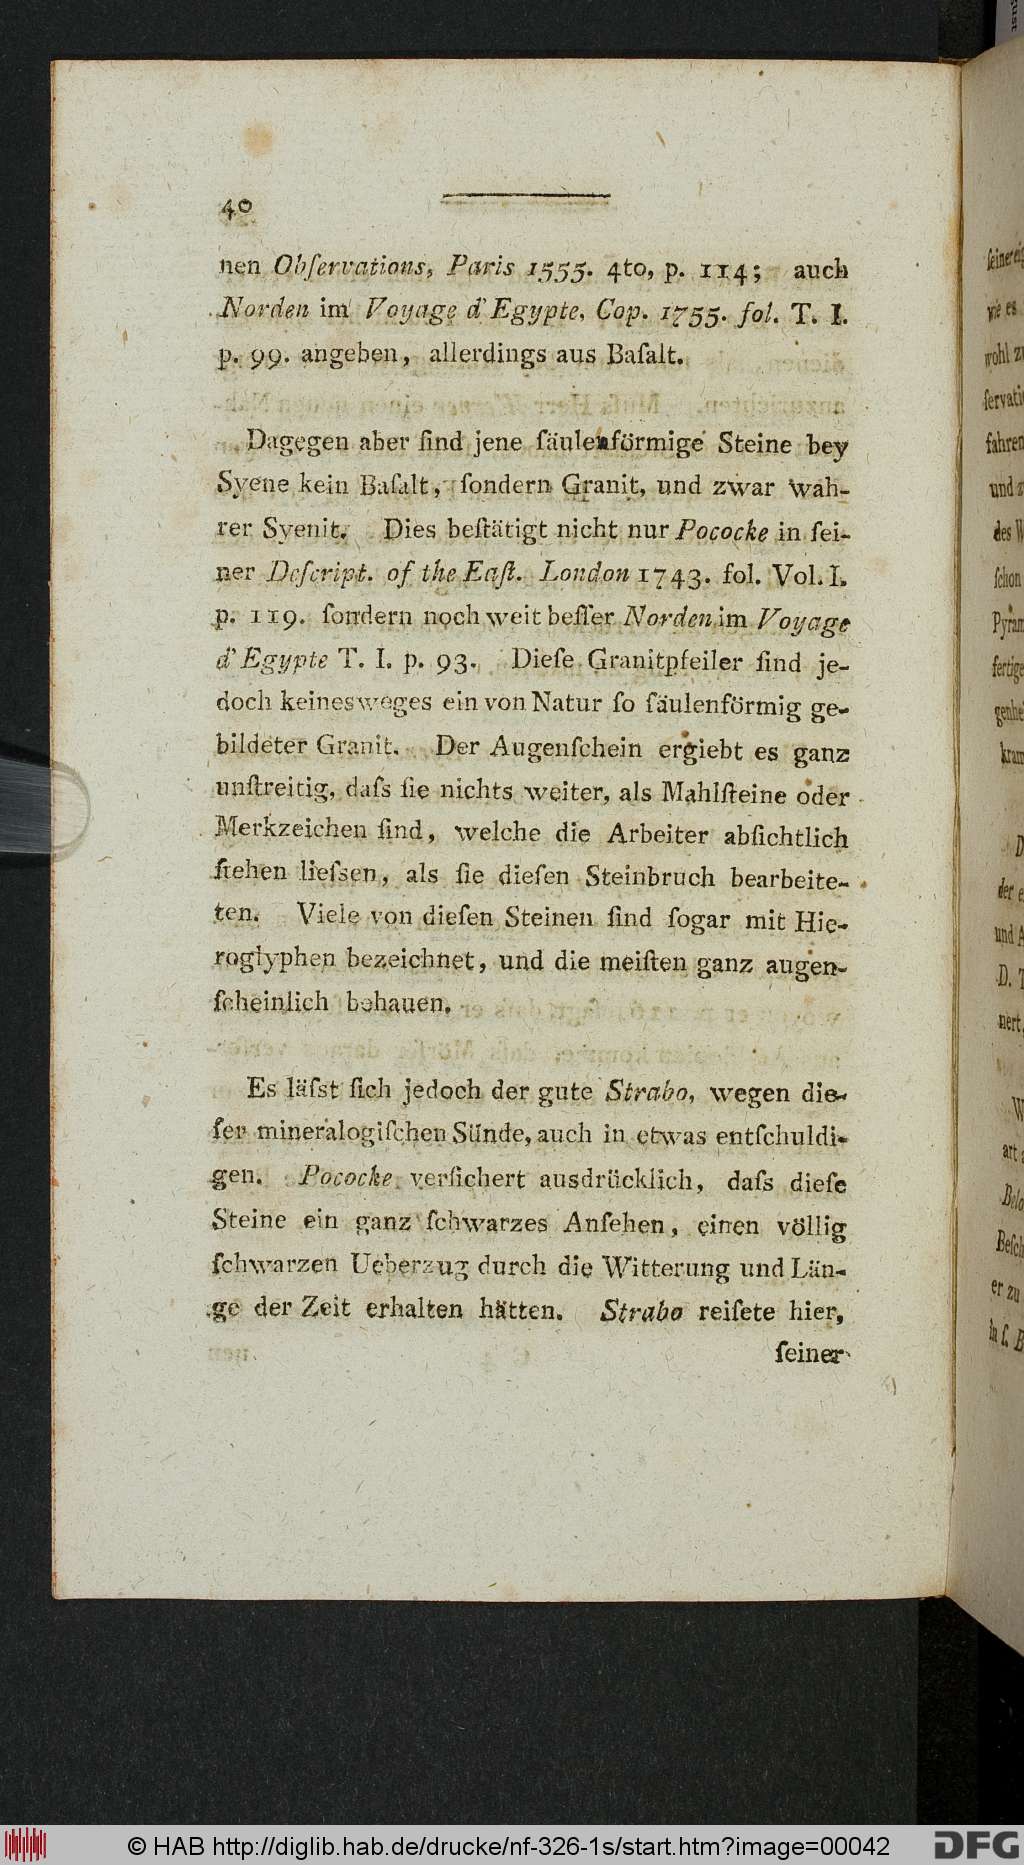 40
nen Obſervations, Paris 1555. 4to, p. 114; auch
Norden im Voyage d'Egypte, Cop. 1755. fol. T. I.
p. 99. angeben, allerdings aus Baſalt.
Dagegen aber ſind jene ſäulenförmige Steine bey
Syene kein Baſalt, ſondern Granit, und zwar wah-
rer Syenit. Dies beſtätigt nicht nur Pococke in ſei-
ner Deſcript. of the Eaſt. London 1743. fol. Vol. I.
p. 119. ſondern noch weit beſſer Norden im Voyage
d'Egypte T. I. p. 93. Dieſe Granitpfeiler ſind je-
doch keinesweges ein von Natur ſo ſäulenförmig ge-
bildeter Granit. Der Augenſchein ergiebt es ganz
unſtreitig, daſs ſie nichts weiter, als Mahlſteine oder
Merkzeichen ſind, welche die Arbeiter abſichtlich
ſtehen lieſsen, als ſie dieſen Steinbruch bearbeite-
ten. Viele von dieſen Steinen ſind ſogar mit Hie-
roglyphen bezeichnet, und die meiſten ganz augen-
ſcheinlich behauen.
Es läſst ſich jedoch der gute Strabo, wegen die-
ſer mineralogiſchen Sünde, auch in etwas entſchuldi-
gen. Pococke verſichert ausdrücklich, daſs dieſe
Steine ein ganz ſchwarzes Anſehen, einen völlig
ſchwarzen Ueberzug durch die Witterung und Län-
ge der Zeit erhalten hätten. Strabo reiſete hier,
ſeiner
wie es
wohl
fahren
und
des
ſchon
der
und
© HAB http://diglib.hab.de/drucke/nf-326-1s/start.htm?image=00042
DFG